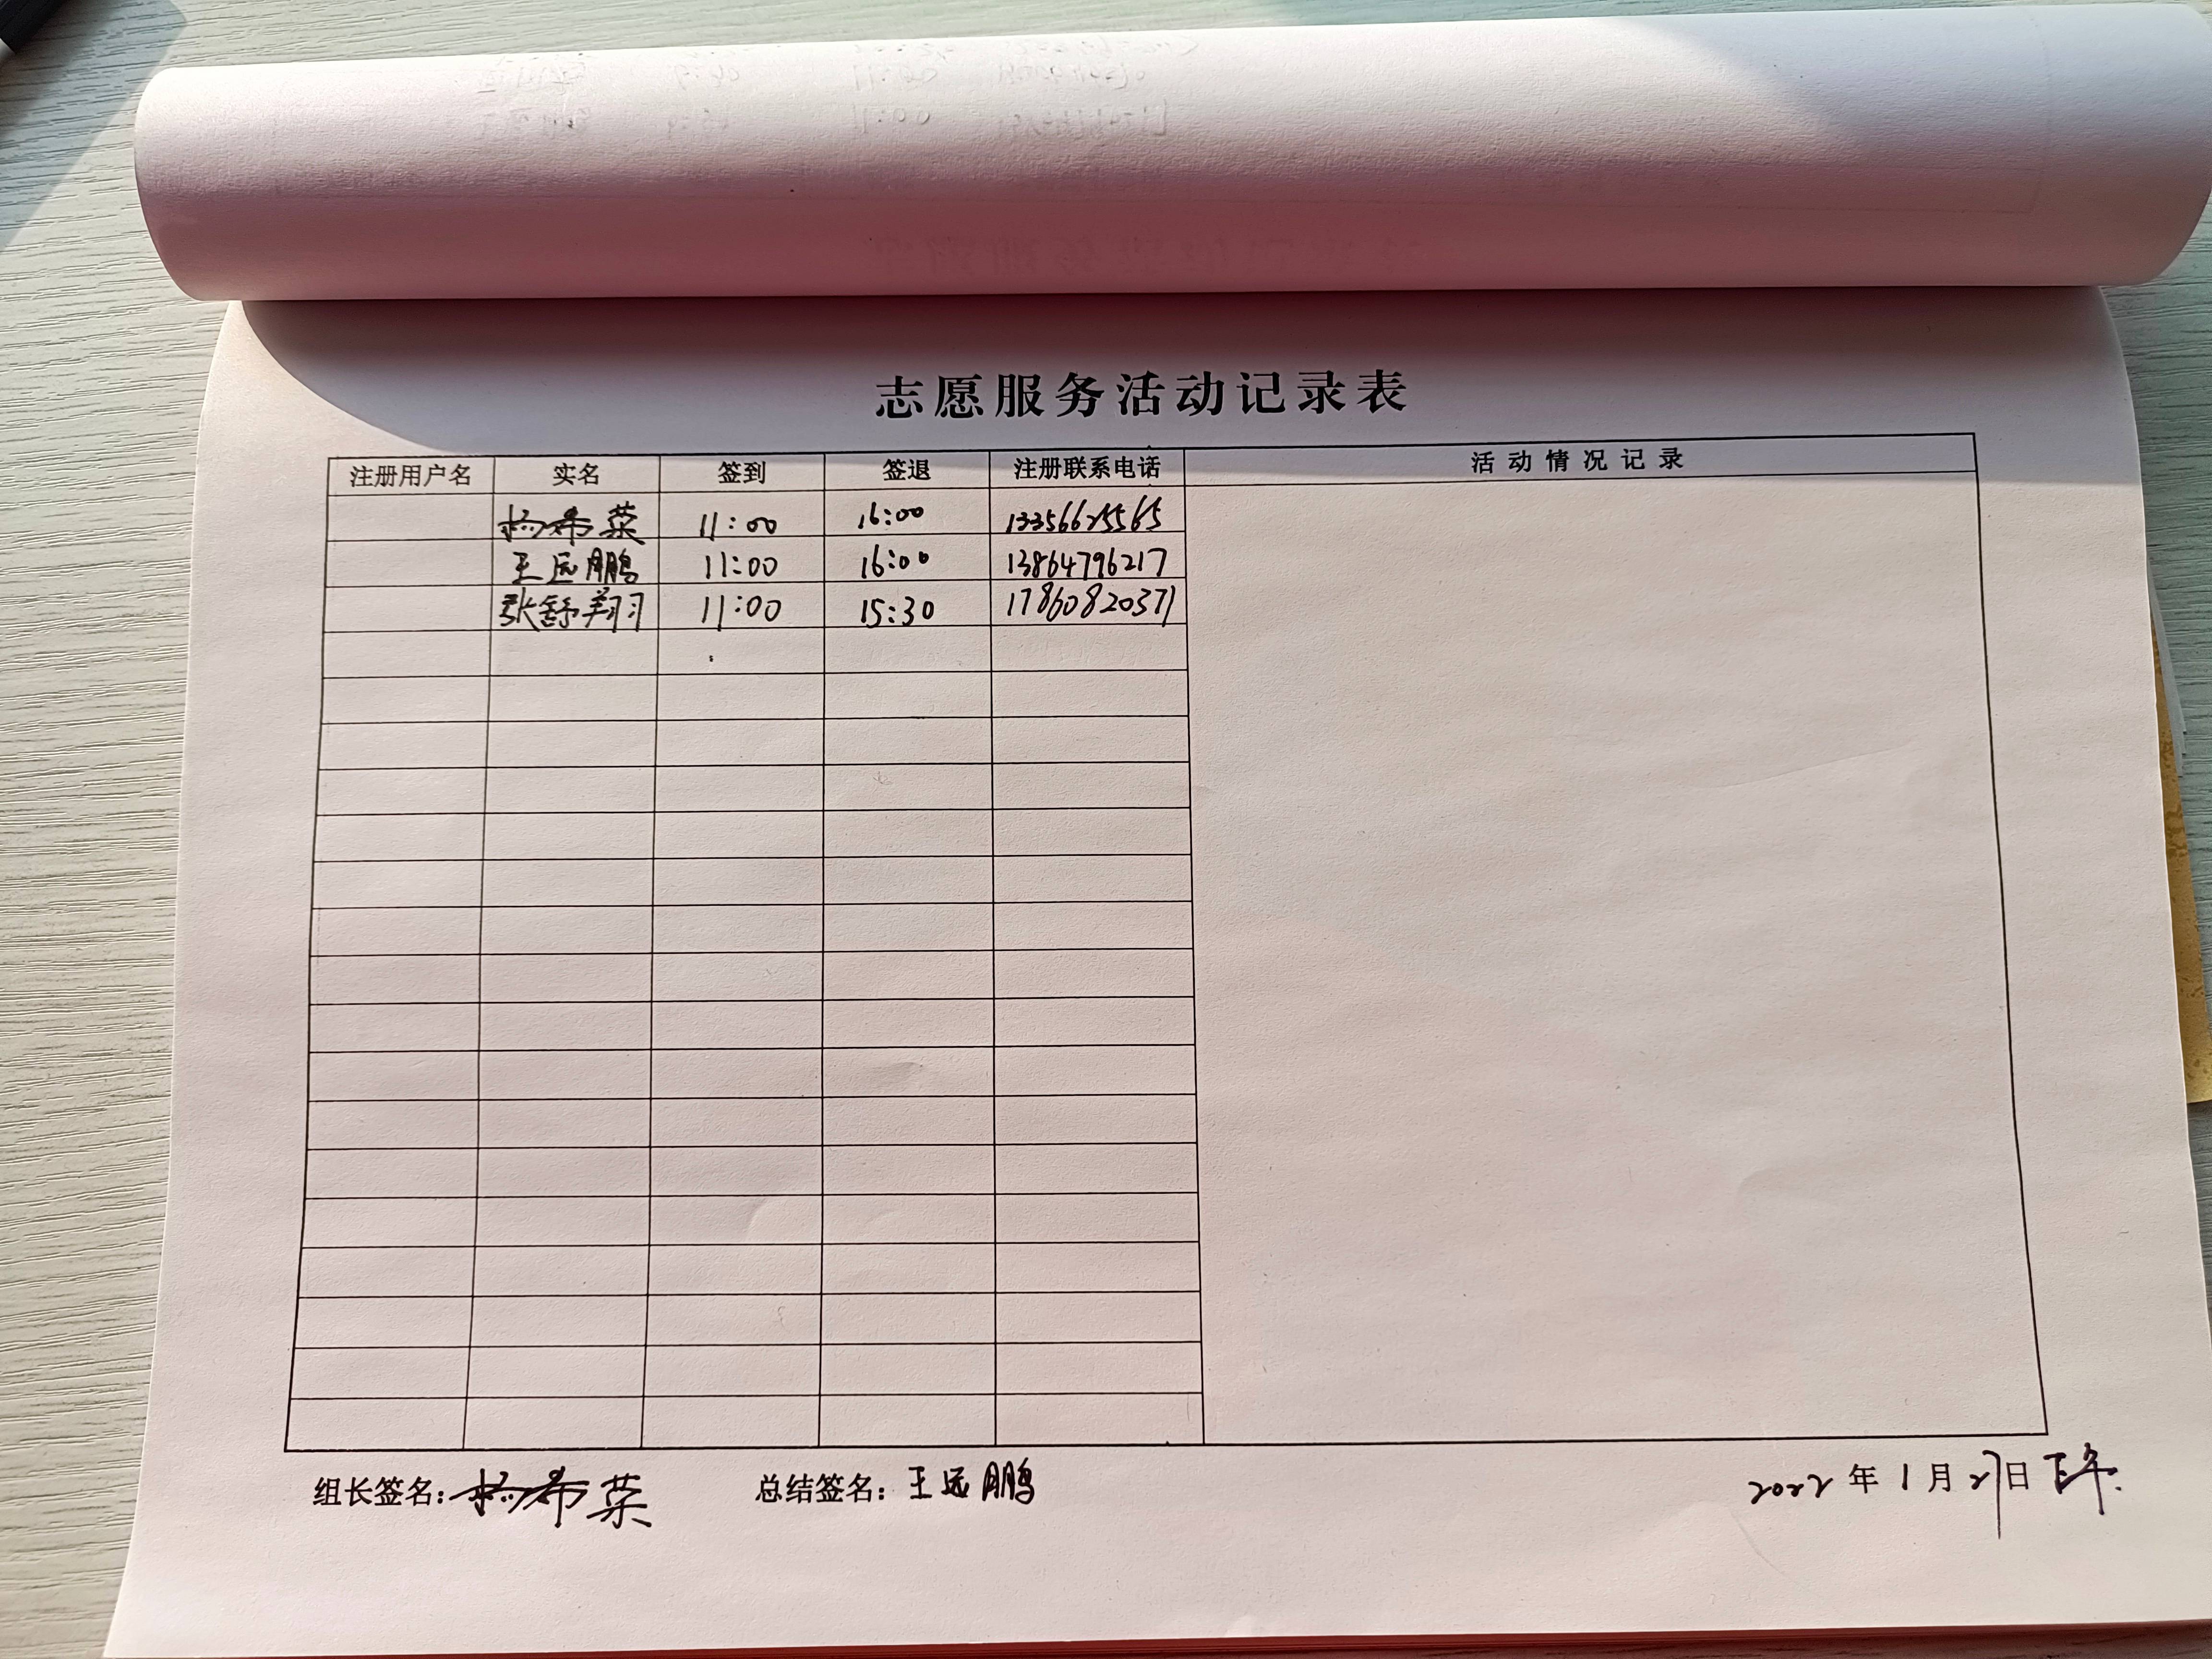 志愿服务活动记录表
注册用户名 实名 签到 签退 注册联系电话 活动情况记录
杨希荣 11:00 16:00 13356625565
王远鹏 11:00 16:00 13864796217
张舒翔 11:00 15:30 17860820371
组长签名：杨希荣 总结签名：王远鹏 2022年1月27日下午.